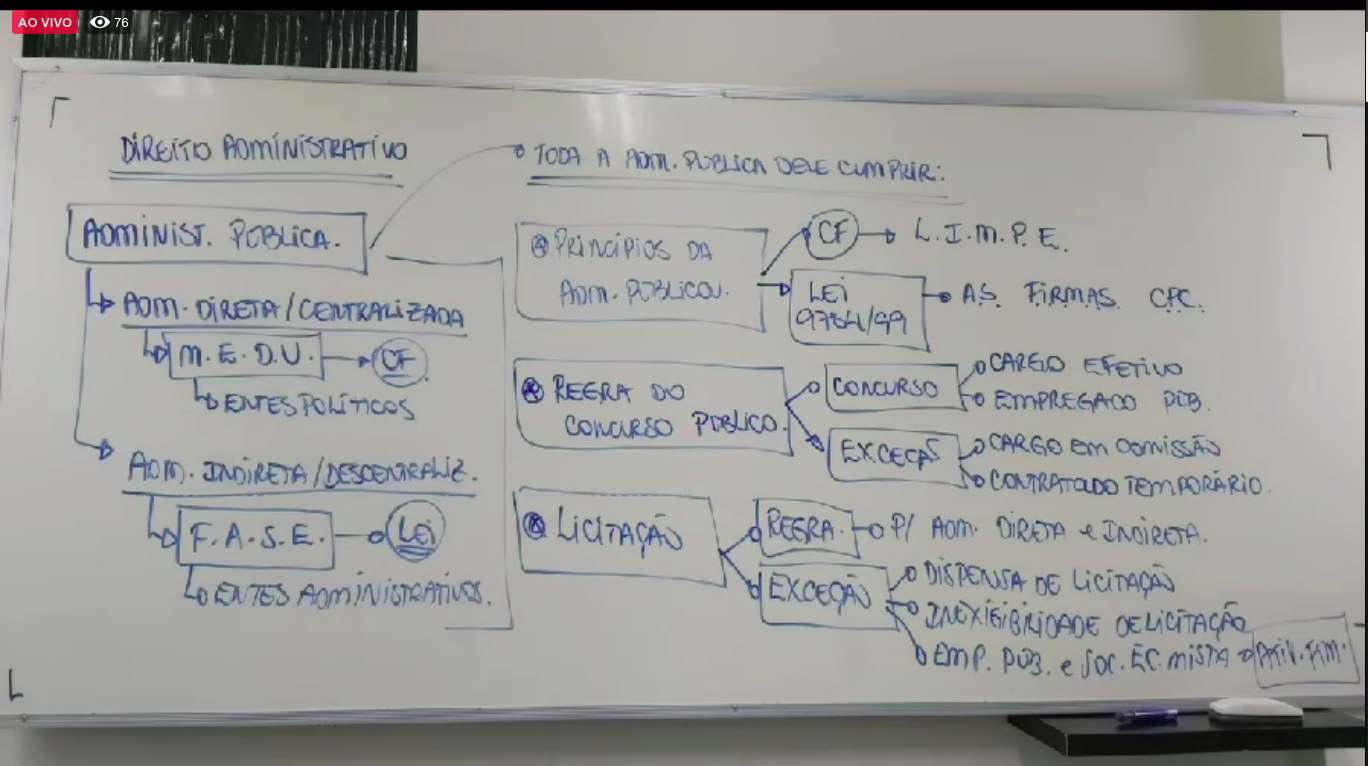 AO VIVO 76
DIREITO ADMINISTRATIVO
ADMINIST. PÚBLICA.
ADM. DIRETA/CENTRALIZADA
M.E.D.U. CF
ENTES POLÍTICOS
ADM. INDIRETA/DESCENTRALIZ.
F.A.S.E. LEI
ENTES ADMINISTRATIVOS.
TODA A ADM. PÚBLICA DEVE CUMPRIR:
PRINCÍPIOS DA
ADM. PÚBLICA.
CF L.I.M.P.E.
LEI
9784/99
A.S. FIRMAS CPC.
REGRA DO
CONCURSO PÚBLICO.
CONCURSO
CARGO EFETIVO
EMPREGADO PÚB.
EXCEÇÃO
CARGO EM COMISSÃO
CONTRATADO TEMPORÁRIO.
LICITAÇÃO
REGRA. P/ ADM. DIRETA e INDIRETA.
EXCEÇÃO
DISPENSA DE LICITAÇÃO
INEXIGIBILIDADE DE LICITAÇÃO
EMP. PÚB. e SOC. EC. MISTA ATIV. FIM.